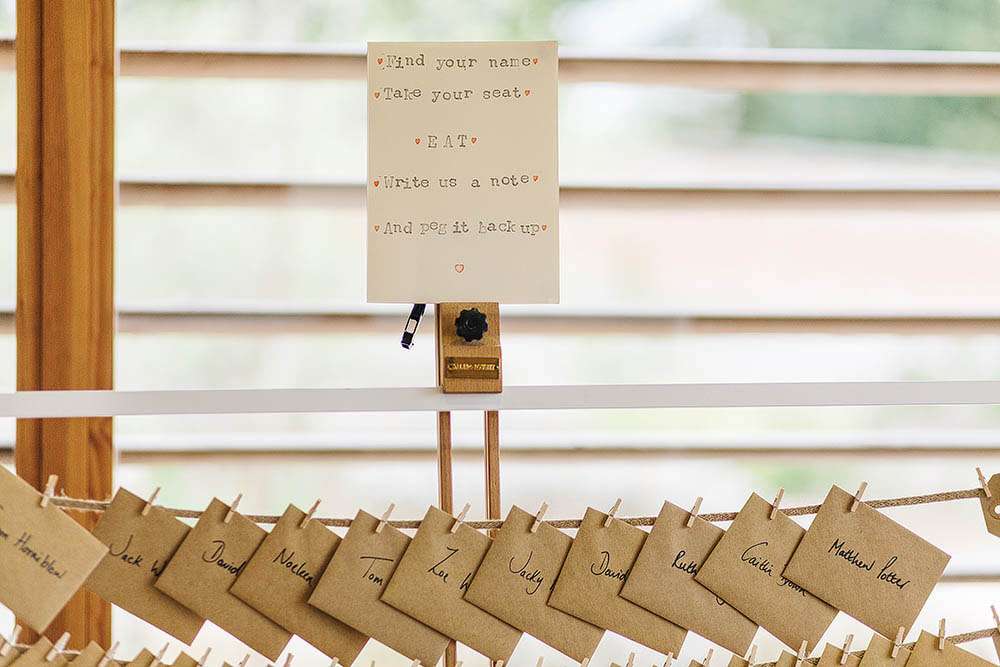 Find your name
Take your seat
EAT
Write us a note
And peg it back up
Horniblow
Jack W
David
Noeleen
Tom
Zoe W
Jacky
David
Ruth
Caitlin
Matthew Potter